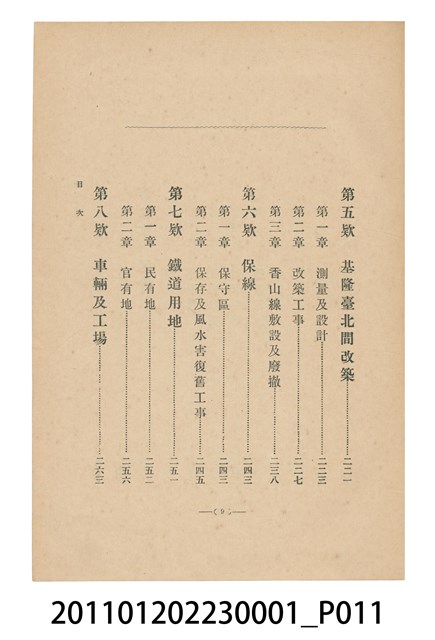 第五欵 基隆臺北間改築……二二一
第一章 測量及設計……二二三
第二章 改築工事……二二七
第三章 香山線敷設及廢撤……二三八
第六欵 保線……二四三
第一章 保守區……二四三
第二章 保存及風水害復舊工事……二四五
第七欵 鐵道用地……二五一
第一章 民有地……二五二
第二章 官有地……二五六
第八欵 車輛及工場……二六三
目次
—( 9 )—
201101202230001_P011